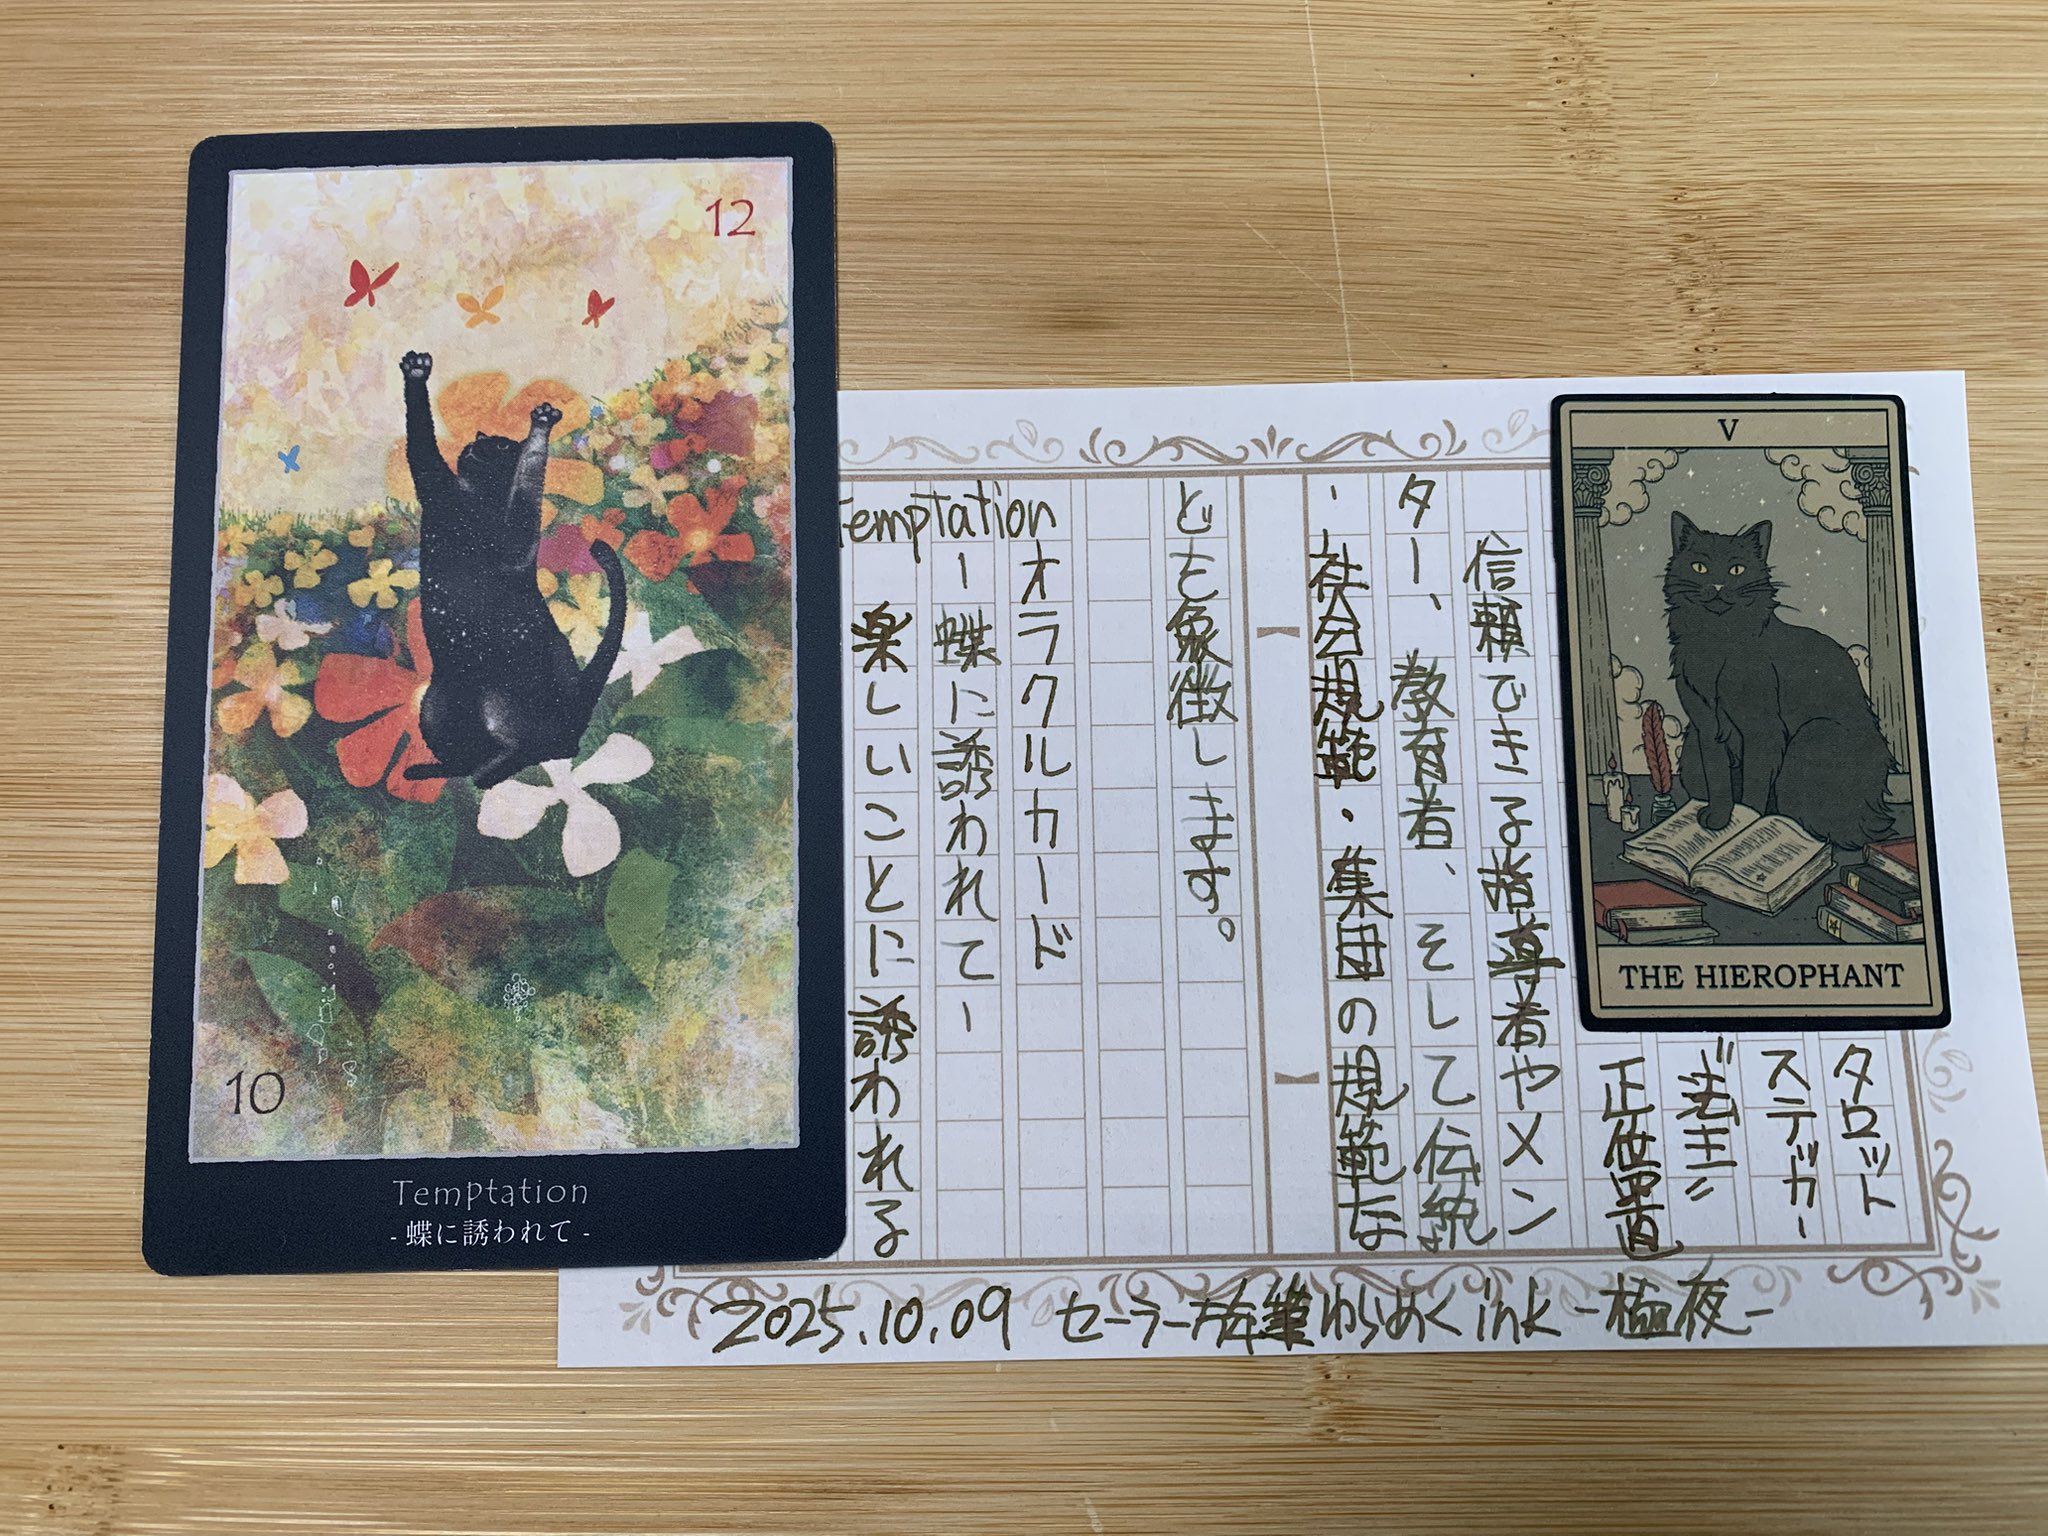 12
10
Temptation
- 蝶に誘われて -
V
THE HIEROPHANT
タロット
ステッカー
"法王"
正位置
信頼できる指導者やメン
ター、教育者、そして伝統
・社会規範・集団の規範な
どを象徴します。
オラクルカード
Temptation
ー蝶に誘われてー
楽しいことに誘われる
2025.10.09 セーラー万年筆ゆらめくink -極夜-